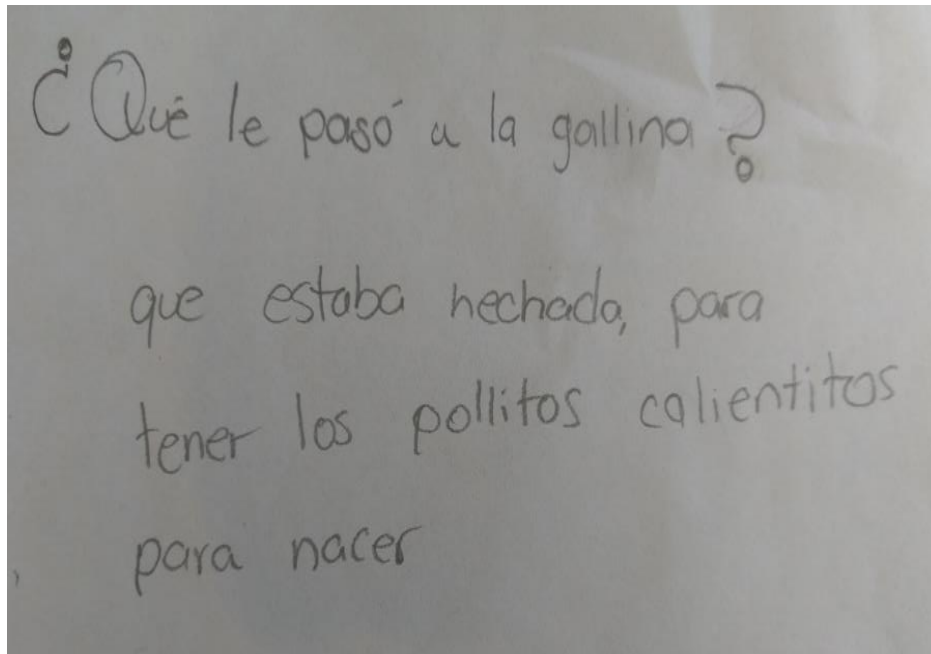 ¿Qué le pasó a la gallina?
que estaba hechada, para
tener los pollitos calientitos
para nacer